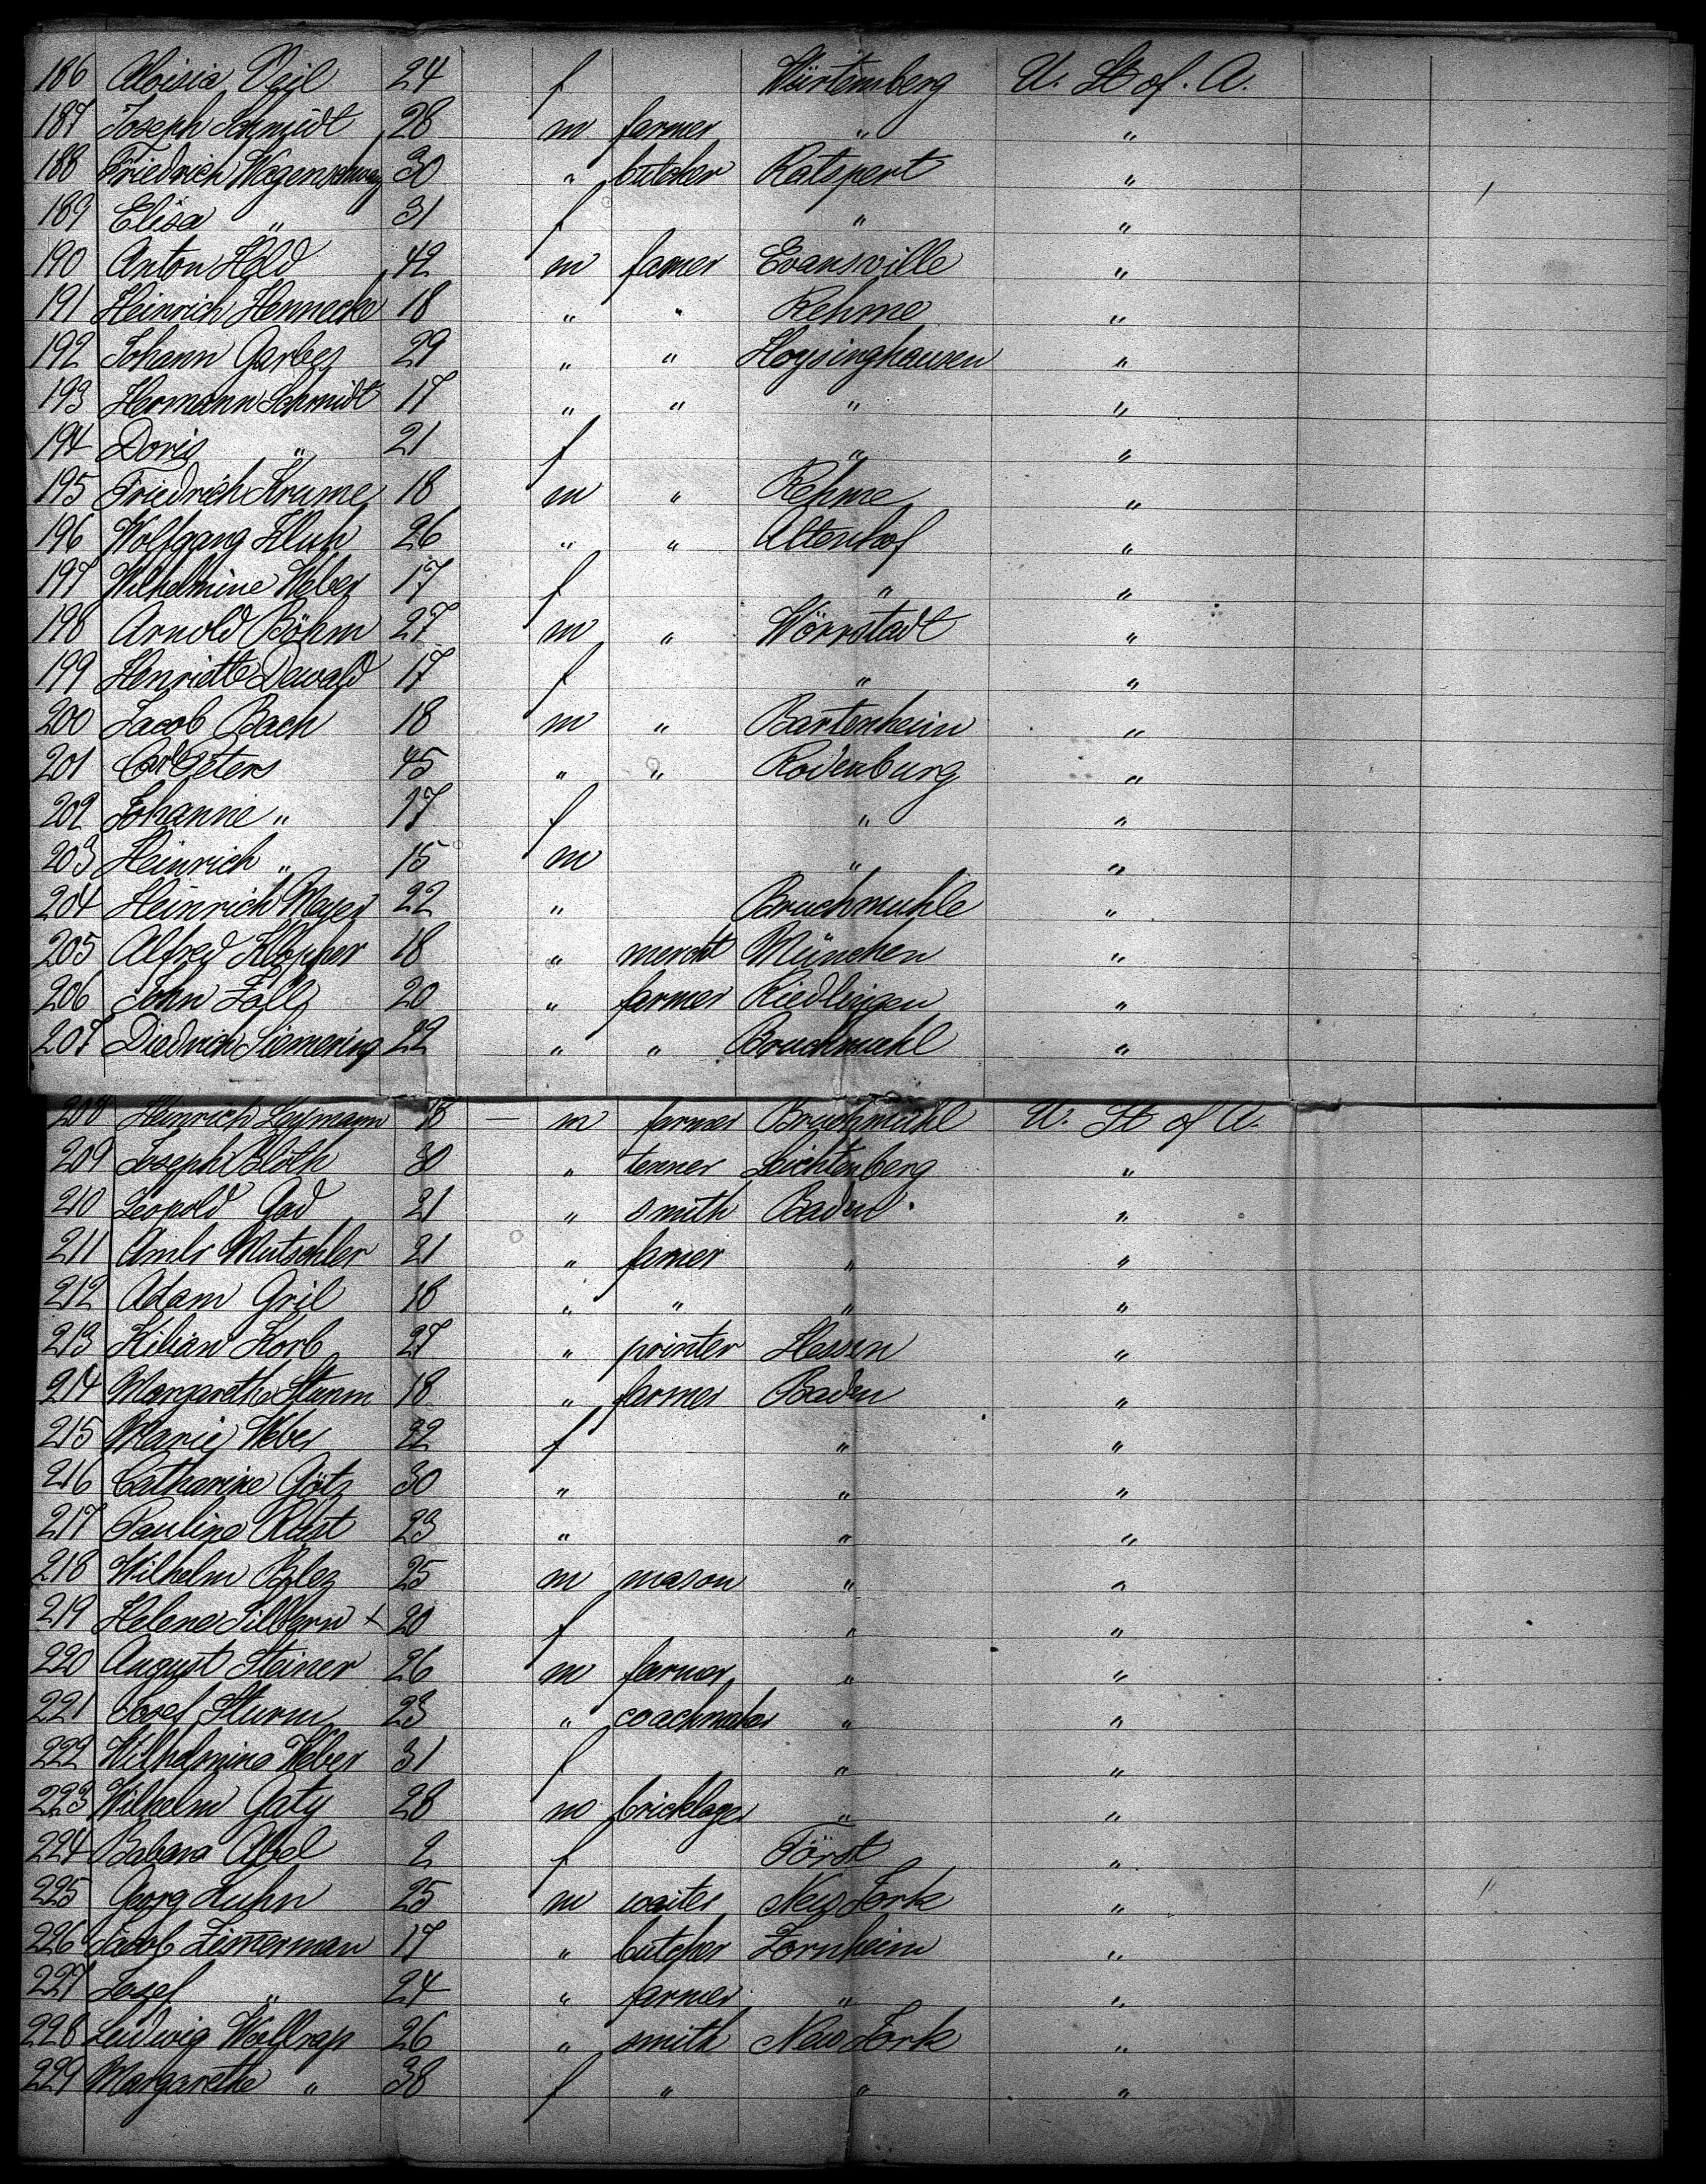 186 Aloisia Veil 24 f Würtemberg U. St of. A.
187 Joseph Schmidt 28 m farmer " "
188 Friedrich 30 " butcher Ratspert "
189 Elisa " 31 f " "
190 Anton Held 42 m famer Evansville "
191 Heinrich Hennecke 18 " " Rehme "
192 Johann Garbes 29 " " Hoysinghausen "
193 Hermann Schmidt 17 " " " "
194 Doris " 21 f " "
195 Friedrich Krume 18 m " Rehme "
196 Wolfgang 26 " " Altenhof "
197 Wilhelmine Weber 17 f " "
198 Arnold Böhm 27 m " Wörrstadt "
199 Henriette Dewald 17 f " "
200 Jacob Bach 18 m " Bartenheim "
201 Carl Peters 45 " " Rodenburg "
202 Johanne " 17 f " "
203 Heinrich " 15 m " "
204 Heinrich Meyer 22 " Bruchmuhle "
205 Alfred Klopfer 18 " mercht München "
206 John Zoll 20 " farmer Riedlingen "
207 Diedrich Siemering 22 " " Bruchmuhl "
208 Heinrich Leymann 18 — m farmer Bruchmuhl U. St of A.
209 Joseph Bloth 30 " tenner Leichtenberg "
210 Leopold Gad 21 " smith Baden "
211 Mutschler 21 " famer " "
212 Adam Gril 18 " " " "
213 Kilian Korb 27 " printer Hessen "
214 Margarethe Sturm 18 " farmer Baden "
215 Marie Weber 22 f " "
216 Catharine Götz 30 " " "
217 Pauline Rust 23 " " "
218 Wilhelm 25 m mason " "
219 Helene Silbern + 20 f " "
220 August Steiner 26 m farmer " "
221 Josef Sturm 23 " coachmaker " "
222 Wilhelmine Weber 31 f " "
223 Wilhelm Gaty 28 m bricklayer " "
224 Babara Abel 2 f Först "
225 Georg Kuhn 25 m waiter New York "
226 Jacob Zimerman 17 " butcher Zornheim "
227 Josef " 24 " farmer " "
228 Ludwig 26 " smith New York "
229 Margarethe " 38 f " " "